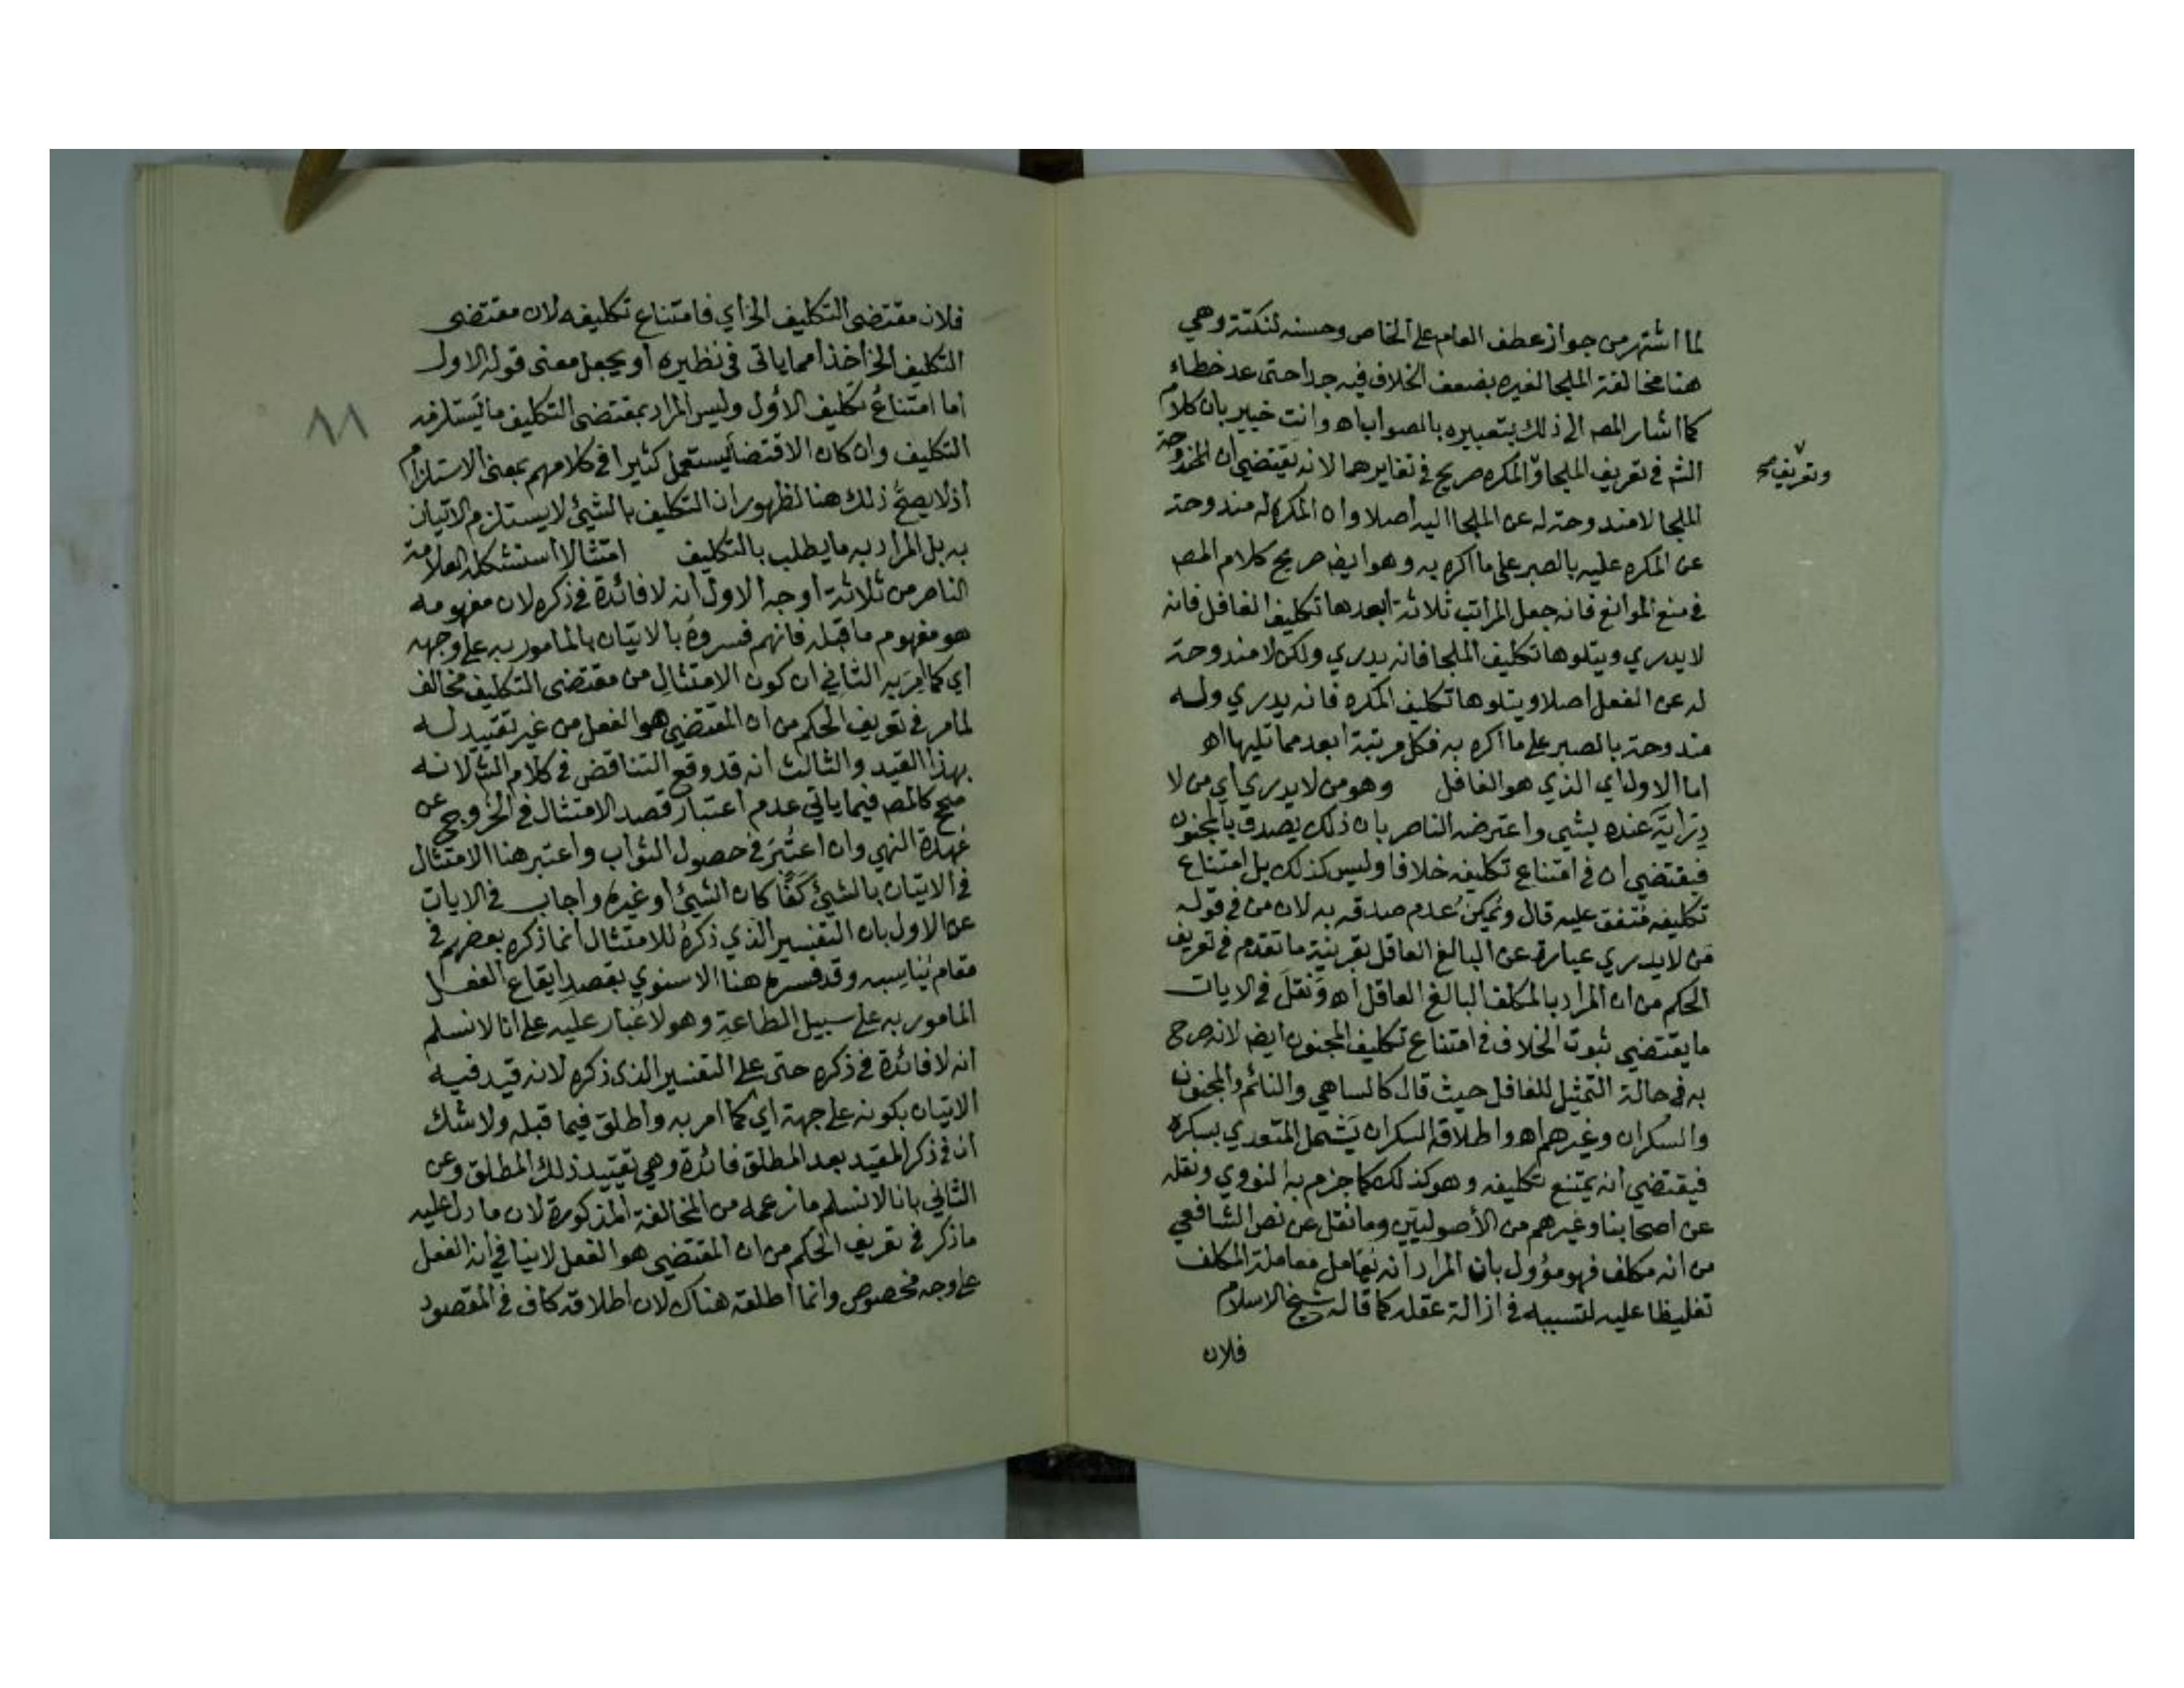 لما اشتهر من جواز عطف العام على الخاص وحسنه لنكتة وهي
هنا مخالفة الملجا لغيره بضعف الخلاف فيه جدا حتى عد خطاء
كما اشار المصـ الى ذلك بتعبيره بالصواب اهـ وانت خبير بان كلام
الشـ في تعريف الملجا والمكره صريح في تغايرهما لانه يقتضي ان
وتعريف صح
الملجا لا مندوحة له عن الملجا اليه اصلا وان المكره له مندوحة
عن المكره عليه بالصبر على ما اكره به وهو ايضـ صريح كلام المصـ
في منع الموانع فانه جعل المراتب ثلاثة ابعدها تكليف الغافل فانه
لا يدري ويتلوها تكليف الملجا فانه يدري ولكن لا مندوحة
له عن الفعل اصلا ويتلوها تكليف المكره فانه يدري وله
مندوحة بالصبر على ما اكره به فكل مرتبة ابعد مما تليها اهـ
اما الاول اي الذي هو الغافل وهو من لا يدري اي من لا
دِرَايَةَ عنده بشي واعترضه الناصر بان ذلك يصدق بالمجنون
فيقتضي ان في امتناع تكليفه خلافا وليس كذلك بل امتناع
تكليفه مُتفق عليه قال ويُمكِنُ عدم صدقه به لان من في قوله
مَن لا يدري عبارة عن البالغ العاقل بقرينة ما تقدم في تعريف
الحكم من ان المراد بالمكلف البالغ العاقل اهـ وَنَقلَ في الايات
ما يقتضي ثبوت الخلاف في امتناع تكليف المجنون ايضـ لانه صرح
به في حالة التمثيل للغافل حيث قال كالساهي والنائم والمجنون
والسكران وغيرهم اهـ واطلاقه السكران يَشمل المتعدي بسكره
فيقتضي انه يمتنع تكليفه وهو كذلك كما جزم به النووي ونقله
عن اصحابنا وغيرهم من الأصوليين وما نقل عن نص الشافعي
من انه مكلف فهو مؤول بان المراد انه يُعَامل مُعاملة المكلف
تغليظا عليه لتسببه في ازالة عقله كما قاله شيخ الاسلام
فلان
٨٨
فلان مقتضى التكليف الخ اي فامتناع تكليفه لان مقتضى
التكليف الخ اخذا مما ياتى في نظيره او يجعل معنى قوله الاول
اما امتناعُ تكليف الأول وليس المراد بمقتضى التكليف ما يَستلزمه
التكليف وان كان الاقتضا يستعمل كثيرا في كلامهم بمعنى الاستلزام
اذ لا يصحُّ ذلك هنا لظهور ان التكليف بالشيئ لا يستلزم الاتيان
به بل المراد به ما يطلب بالتكليف امتثالا استشكله العلامة
الناصر من ثلاثة اوجه الاول انه لا فائدة في ذكره لان مفهومه
هو مفهوم ما قبله فانهم فسروهُ بالاتيان بالمامور به على وجهه
اي كما اُمِرَ به الثاني ان كون الامتثال من مقتضى التكليف مخالف
لما مر في تعريف الحكم من ان المقتضي هو الفعل من غير تقييد له
بهذا القيد والثالث انه قد وقع التناقض في كلام الشـ لانه
صحح كالمصـ فيما ياتي عدم اعتبار قصد الامتثال في الخروج عن
عُهدة النهي وان اعتُبِرَ في حصول الثواب واعتبر هنا الامتثال
في الاتيان بالشيئ كَفًّا كان الشيئ او غيره واجاب في الايات
عن الاول بان التفسير الذي ذكرهُ للامتثال انما ذكره بعضهم في
مقام يُنَاسِبه وقد فسره هنا الاسنوي بقصدِ ايقاع الفعل
المامور به على سبيل الطاعةِ وهو لا غُبار عليه على انا لا نسلم
انه لا فائدة في ذكره حتى على التفسير الذى ذكره لانه قيد فيه
الاتيان بكونه على جهة اي كما امر به واطلق فيما قبله ولا شك
ان في ذكر المقيد بعد المطلق فائدة وهي تقييد ذلك المطلق وعن
الثاني بانا لا نسلم ما زعمه من المخالفة المذكورة لان ما دل عليه
ما ذكر في تعريف الحكم من ان المقتضي هو الفعل لا ينافي انه الفعل
على وجه مخصوص وانما اطلقه هناك لان اطلاقه كاف في المقصود